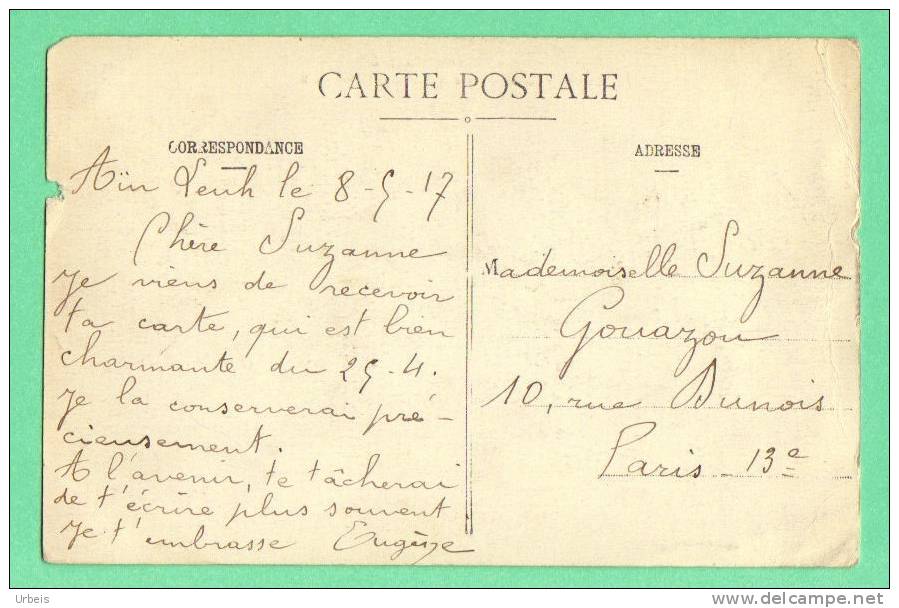 CARTE POSTALE
CORRESPONDANCE
Aïn Leuh le 8-5-17
Chère Suzanne
Je viens de recevoir
ta carte, qui est bien
charmante du 25-4.
Je la conserverai pré-
cieusement.
A l'avenir, je tâcherai
de t'écrire plus souvent
Je t'embrasse Eugène
ADRESSE
Mademoiselle Suzanne
Gouazou
10, rue Dunois
Paris - 13e
Urbeis
www.delcampe.net